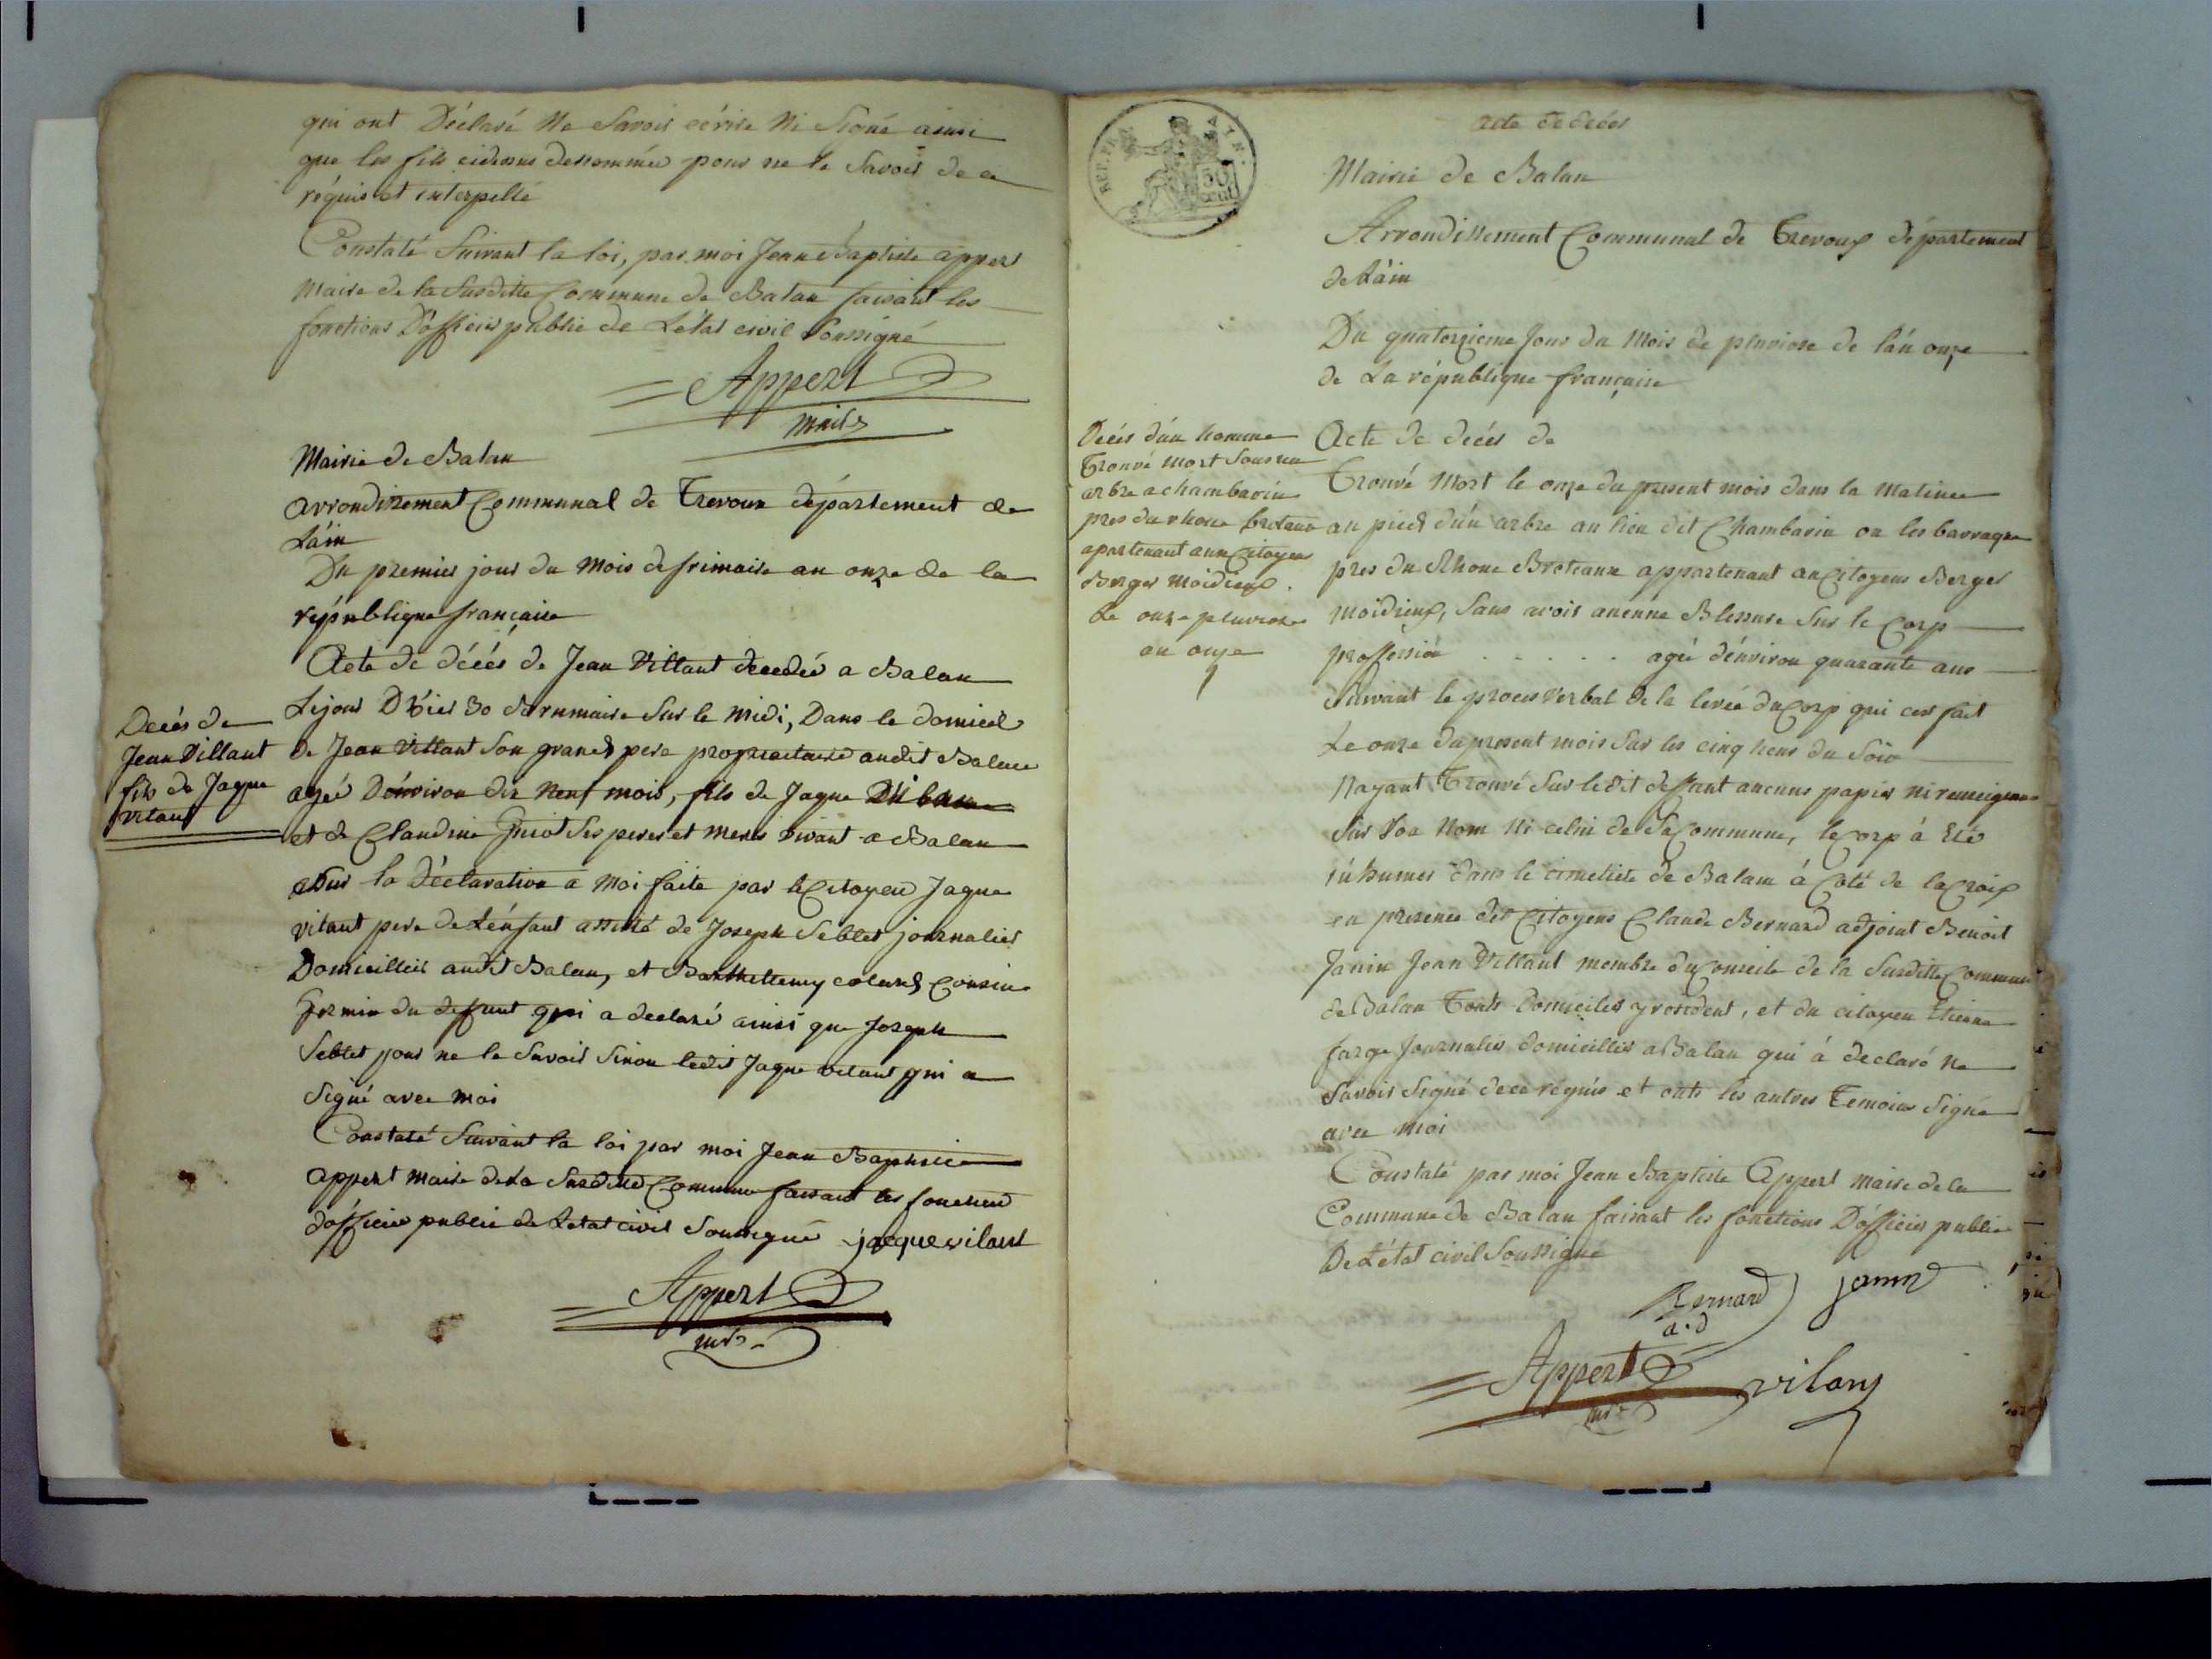 qui ont Déclaré Ne Savoir écrire Ni Signé ainsi
que les fils cidessus denommés pour ne le Savoir de ce
réquis et interpellé
Constaté Suivant la loi, par moi Jean Baptiste appert
Maire de la Susditte Commune de Balan faisant les
fonctions D'officier public de L'état civil Soussigné
Appert
maire
Mairie de Balan
arrondissement Communal de Trevoux département de
L'áin
Du premier jour du Mois de frimaire an onze de la
république française
Acte de décés de Jean Villant decedée a Balan
Le jour D'hier 30 Brumaire Sur le Midi, Dans le domicel
Decés de
Jean Villant
fils de Jaque
vitant
de Jean Villant Son grand pere propriaitaire audit Balan
agée D'énviron dix Neuf mois, fils de Jaque
et de Claudine Guiot Ses peres et meres vivant a Balan
Sur la Déclaration a Moi faite par le Citoyen Jaque
vitant pere de L'énfant assisté de Joseph Seblet journalier
Domicilliés audit Balan, et Barthellemy coland Cousin
Germin du deffunt qui a declaré ainsi que Joseph
Seblet pour ne le Savoir Sinon ledit Jaque vitant qui a
Signé avec moi
Constaté Suivant la loi par moi Jean Baptiste
appert maire de La Susditte Commune faisant les fonctions
d'officier public de Letat civil Soussigné jacque vilant
Appert
mre
REP. FRA.
50
cent
Acte de décés
Mairie de Balan
Arrondissement Communal de Trevoux département
de L'áin
Du quatorzieme Jour du Mois de pluviose de l'án onze
de La république française
Décés d'un homme
Trouvé mort Sous un
arbre a chambarin
pres du rhone broteau
apartenant aux Citoyens
Berger moidieux.
Le onze pluviose
an onze
Acte de décés de
Trouvé Mort le onze du present mois dans la Matinee
au pied d'ún arbre au lieu dit Chambarin ou les barraque
pres du Rhone Broteaux appartenant au Citoyens Berger
moidieux, Sans avoir aucunne Blessure Sur le Corp
proffession . . . . . agé d'énviron quarante ans
Suivant le proces Verbal de la levée du Corp qui cest fait
Le onze du present mois Sur les cinq heur du Soir
Nayant Trouvé Sur le dit deffant aucuns papier ni
Sur Son Nom Ni celui de Sa Commune, le Corp à Eté
inhumer dans le cimetiere de Balan á Coté de la Croix
en presence des Citoyens Claude Bernard adjoint Benoit
Janin Jean Villant membre du Conseile de la Susditte Commune
de Balan Touts domicilies y resident, et du citoyen Etienne
farge Journalier domicillier a Balan qui á declaré Ne
Savoir Signé dece réquis et onts les autres Temoins Signé
avec moi
Constaté par moi Jean Baptiste Appert maire de la
Commune de Balan faisant les fonctions D'officier public
De L'état civil Soussigné
Bernard janin
a.d
Appert vilant
mre